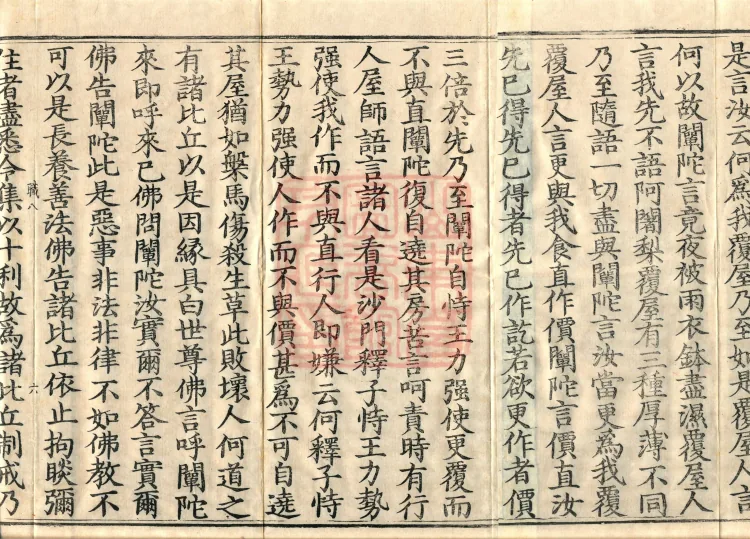 是言汝云何為我覆屋乃至如是覆屋人言
何以故闡陀言竟夜被雨衣鉢盡濕覆屋人
言我先不語阿闍梨覆屋有三種厚薄不同
乃至隨語一切盡與闡陀言汝當更為我覆
覆屋人言更與我食直作價闡陀言價直汝
先已得先已得者先已作訖若欲更作者價
三倍於先乃至闡陀自恃王力強使更覆而
不與直闡陀復自遶其房苦言呵責時有行
人屋師語言諸人看是沙門釋子恃王力勢
强使我作而不與直行人即嫌云何釋子恃
王勢力强使人作而不與價甚為不可自遶
其屋猶如槃馬傷殺生草此敗壞人何道之
有諸比丘以是因緣具白世尊佛言呼闡陀
來即呼來已佛問闡陀汝實爾不答言實爾
佛告闡陀此是惡事非法非律不如佛教不
可以是長養善法佛告諸比丘依止拘睒彌
職八
六
住者盡悉令集以十利故為諸比丘制戒乃